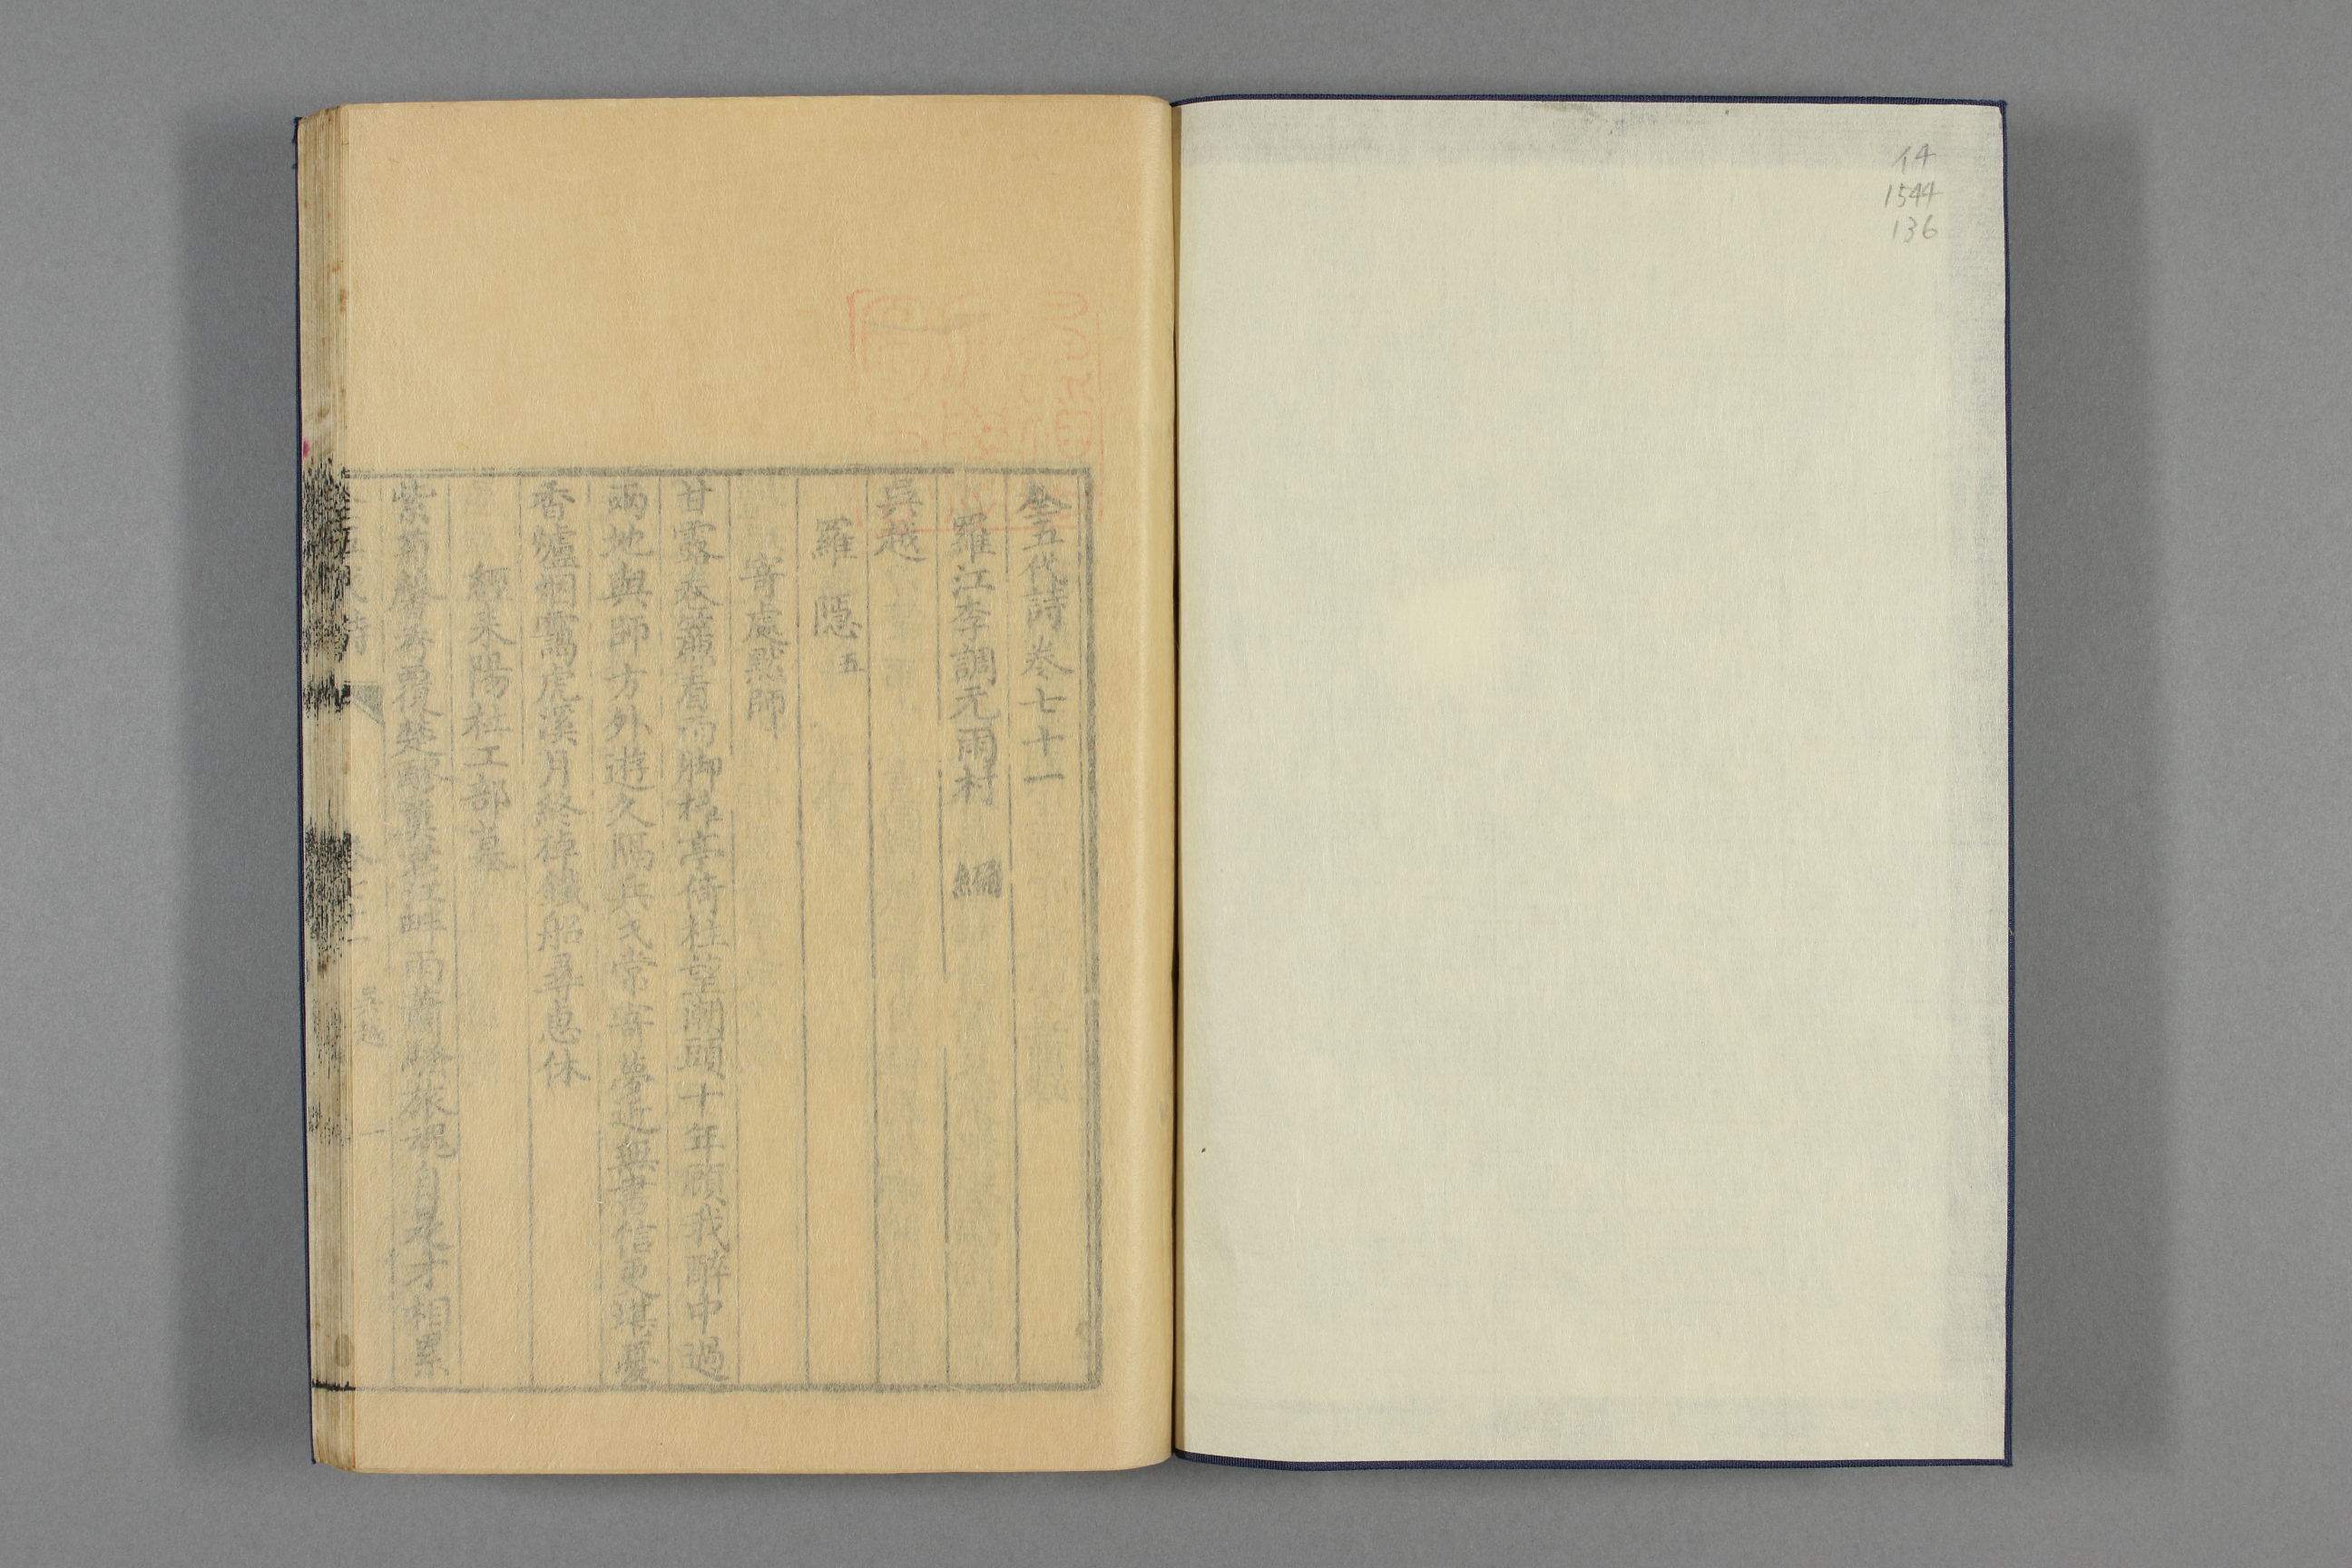 14
1544
136
全五代詩卷七十一
羅江李調元雨村 編
吳越
羅隱 五
寄處默師
甘露卷簾看雨脚樟亭倚柱望潮頭十年顧我醉中過
兩地與師方外遊久隔兵戈常寄夢近無書信更堪憂
香爐烟靄虎溪月終棹鐵船尋惠休
經耒陽杜工部墓
紫菊馨香覆楚醪奠君江畔雨蕭騷旅魂自是才相累
吳越
一